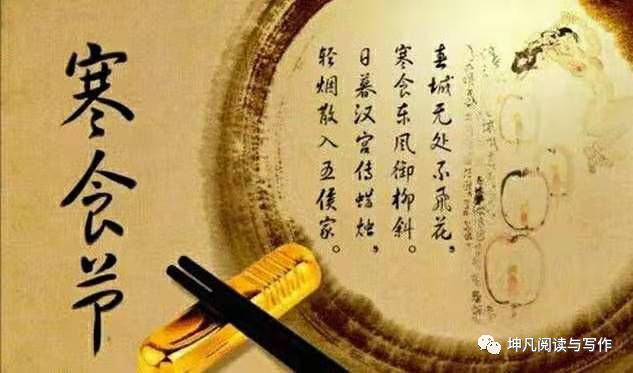 寒食节
春城无处不飛花，
寒食东风御柳斜。
日暮汉宫传蜡烛，
轻烟散入五侯家。
坤凡阅读与写作